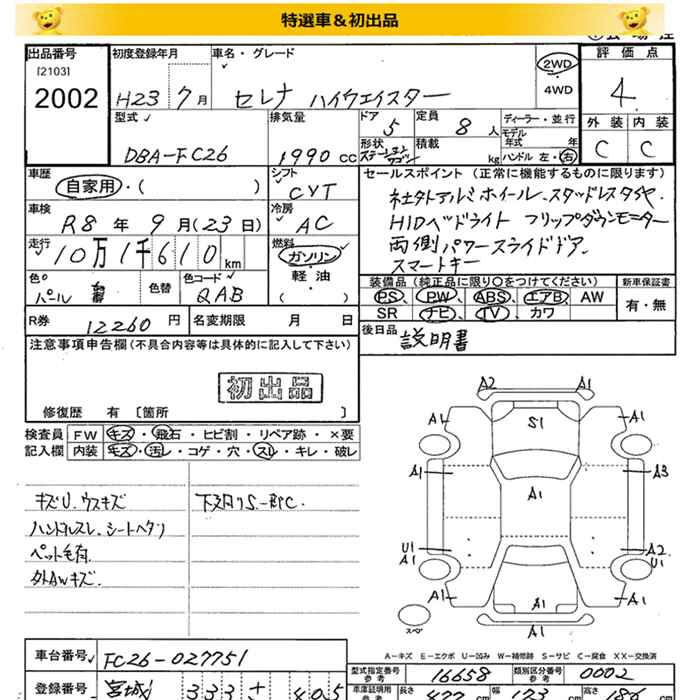 特選車＆初出品
出品番号
[2103]
2002
初度登録年月
H23 7月
車名・グレード
セレナ ハイウェイスター
2WD
4WD
評価点
4
外装 内装
C C
型式
DBA-FC26
排気量
1990 cc
ドア
5
定員
8 人
形状
ステーションワゴン
積載
kg
ディーラー・並行
モデル
年式 年
ハンドル 左・右
車歴
自家用・( )
シフト
CVT
車検
R8 年 9 月 (23日)
冷房
AC
走行
10万1千610 km
燃料
ガソリン
軽・油
( )
色
パール
色替
色コード
QAB
R券
12260 円
名変期限 月 日
セールスポイント (正常に機能するものに限ります)
社外アルミホイール、スタッドレスタイヤ、
HIDヘッドライト フリップダウンモニター
両側パワースライドドア
スマートキー
装備品 (純正品に限り○をつけてください)
PS、PW、ABS、エアB、AW
SR ナビ TV カワ
新車保証書
有・無
後日品
説明書
注意事項申告欄 (不具合内容等は具体的に記入して下さい)
初出品
修復歴 有 [箇所 ]
検査員
記入欄
FW キズ・飛石・ヒビ割・リペア跡・×要
内装 キズ・汚レ・コゲ・穴・スレ・キレ・破レ
キズU、ウスキズ
ハンドルスレ、シートヘタリ
ペット毛有
外AWキズ
下廻りS-BPC.
A2 A1
A1 S1 A1
A1 A1 A3
A1
U1 A2
A1 U1
A1 A1 A1
A1
スペア
A－キズ E－エクボ U－凹み W－補修跡 S－サビ C－腐食 XX－交換済
車台番号
FC26-027751
登録番号
宮城 333 405
型式指定番号
参考
16658
類別区分番号
参考
0002
車庫証明用
参考
長さ
477
幅
173
高さ
186